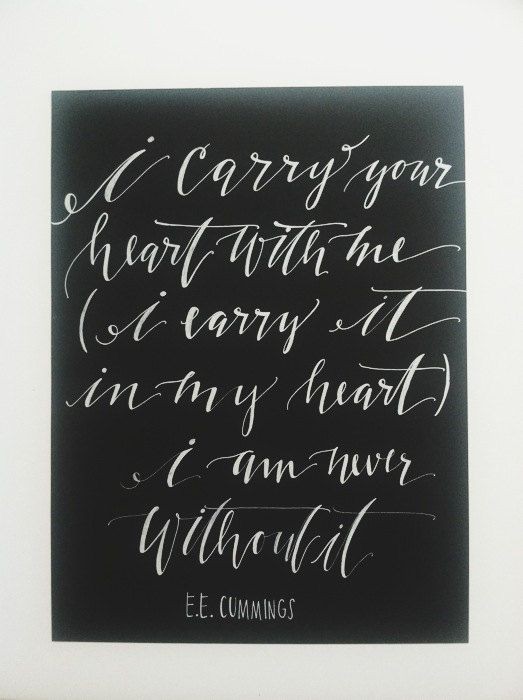 i carry your
heart with me
(i carry it
in my heart)
i am never
without it
E.E. CUMMINGS